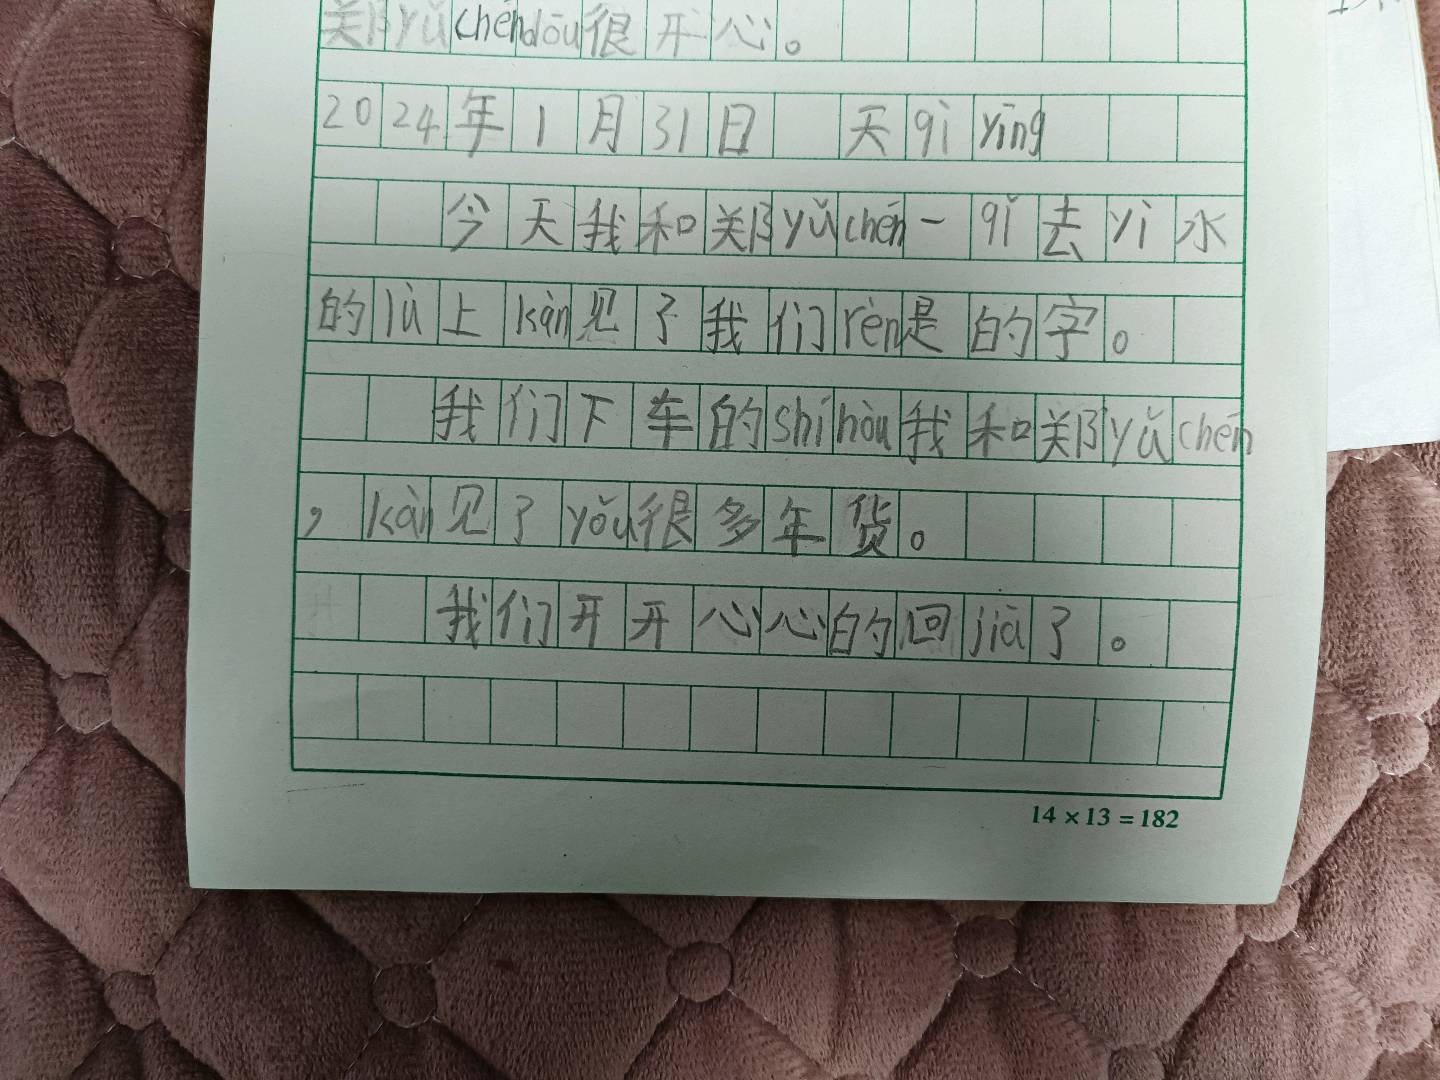 郑yǔchén dōu很开心。
2024年1月31日 天qì yīng
今天我和郑yǔchén一qǐ去yì水
的lù上kàn见了我们rèn是的字。
我们下车的shíhòu我和郑yǔchén
，kàn见了yǒu很多年货。
我们开开心心的回jiā了。
14×13=182